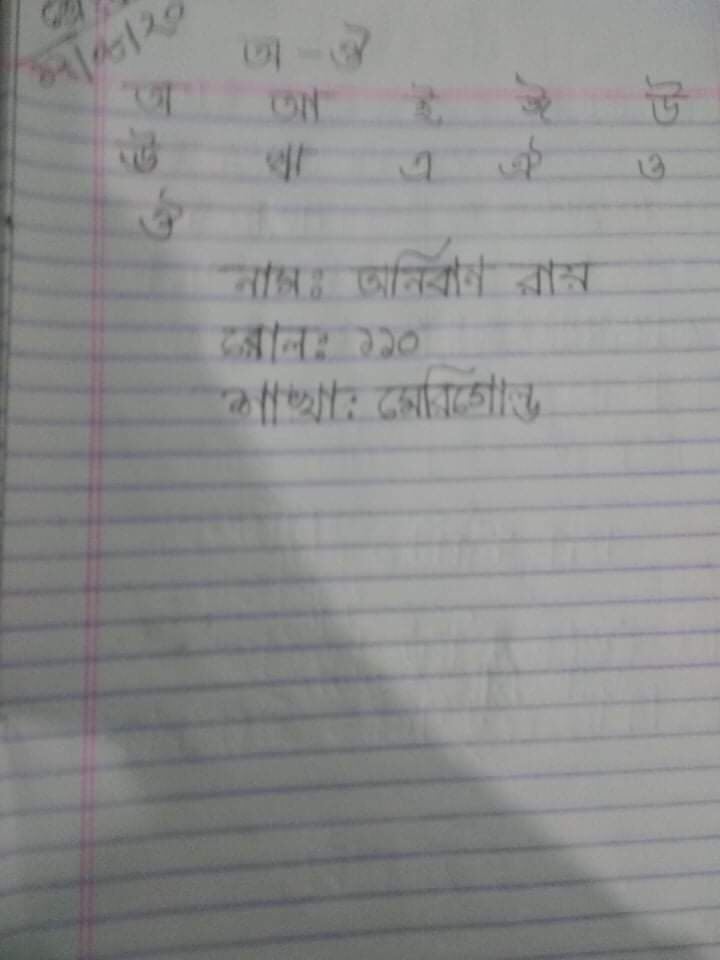 অ - ঔ
অ আ ই ঈ উ
ঊ ঋ এ ঐ ও
ঔ
নামঃ অনির্বাণ রায়
রোলঃ ১১০
শাখাঃ মেরিগোল্ড